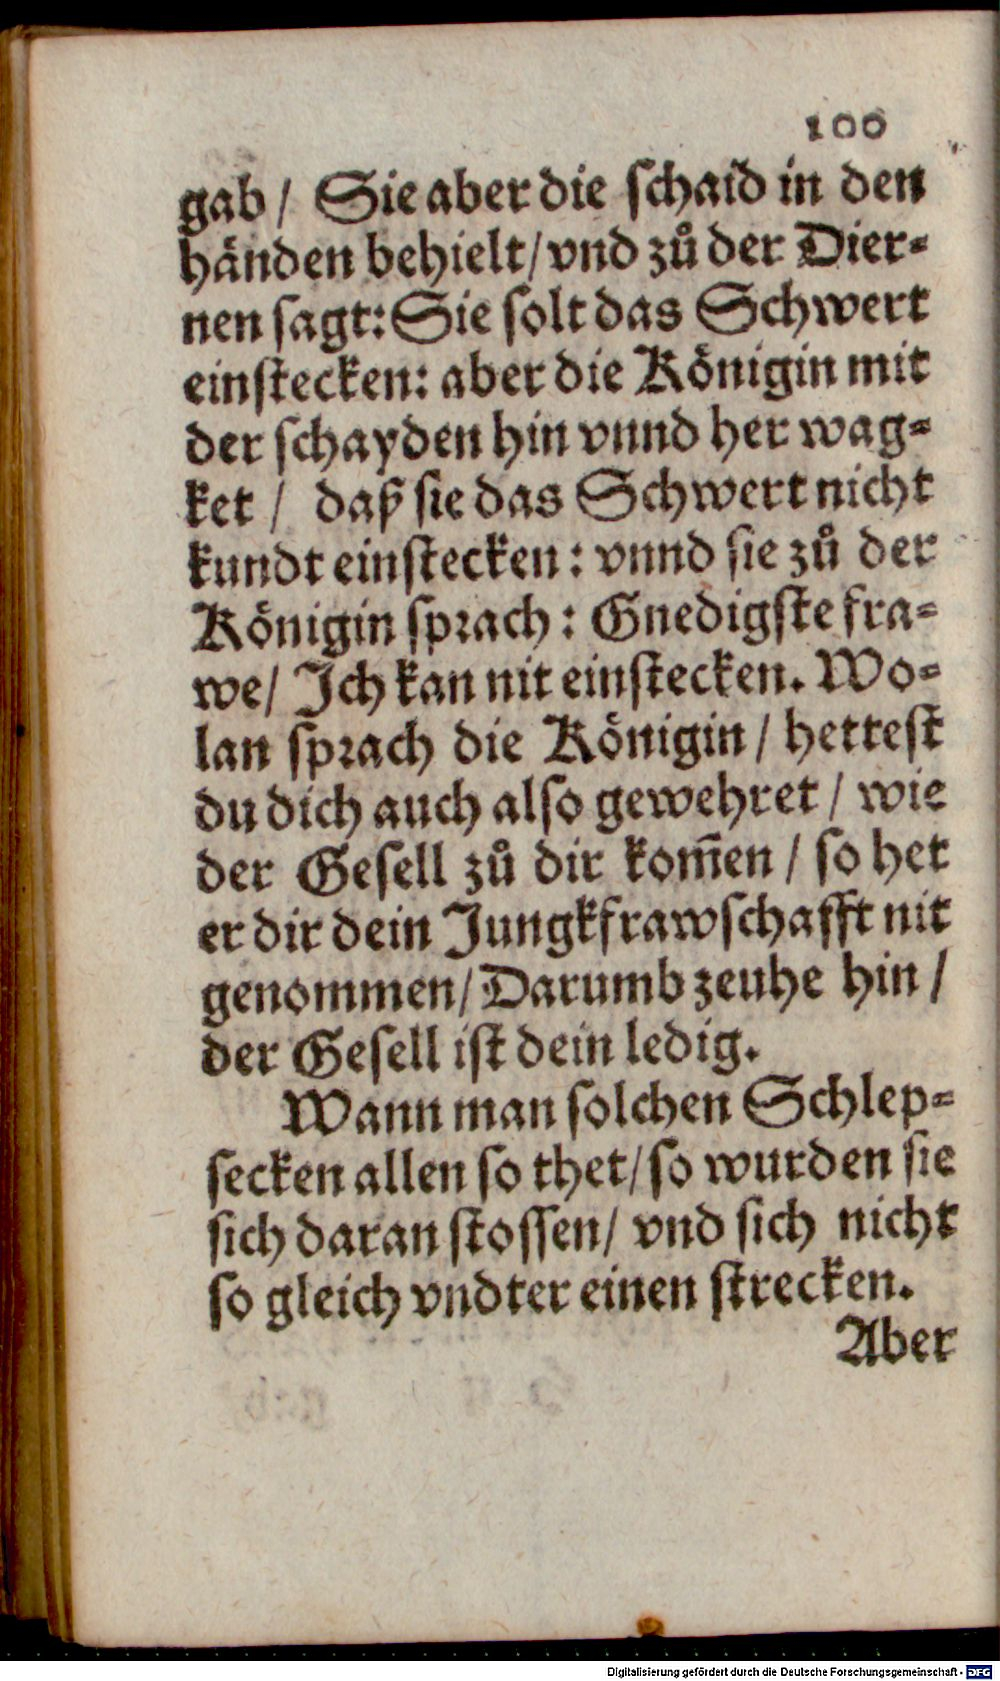 100
gab/ Sie aber die schaid in den
händen behielt/vnd zů der Dier-
nen sagt: Sie solt das Schwert
einstecken: aber die Königin mit
der schayden hin vnnd her wag-
ket / daß sie das Schwert nicht
kundt einstecken: vnnd sie zů der
Königin sprach: Gnedigste fra-
we/ Jch kan nit einstecken. Wo-
lan sprach die Königin/ hettest
du dich auch also gewehret/ wie
der Gesell zů dir kom̃en/ so het
er dir dein Jungkfrawschafft nit
genommen/ Darumb zeuhe hin/
der Gesell ist dein ledig.
Wann man solchen Schlep-
secken allen so thet/ so wurden sie
sich daran stossen/ vnd sich nicht
so gleich vndter einen strecken.
Aber
Digitalisierung gefördert durch die Deutsche Forschungsgemeinschaft - DFG